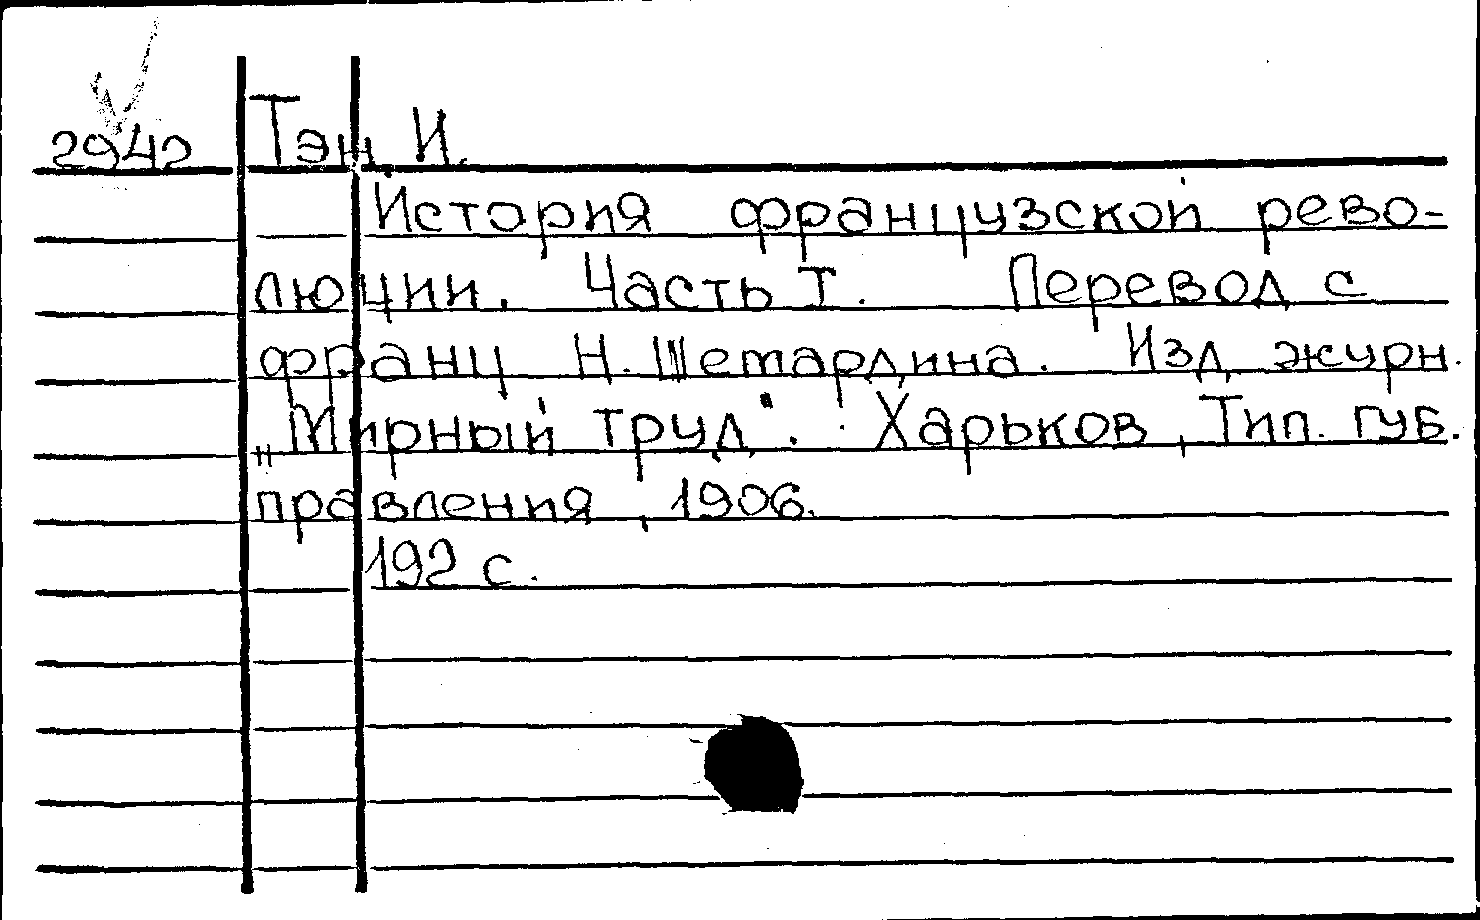 2942 Тэн, И.
История французской рево-
люции. Часть I. Перевод с
франц Н. Шетардина. Изд, журн.
„Мирный труд". Харьков, Тип. губ.
правления, 1906.
192 с.